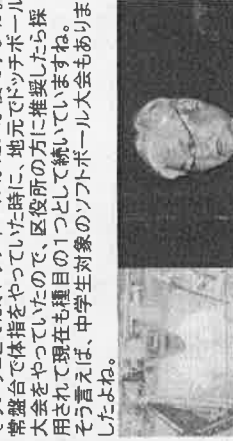 常盤台で体指をやっていた時に、地元でドッチボール
大会をやっていたので、区役所の方に推奨したら採
用されて現在も種目の1つとして続いていますね。
そう言えば、中学生対象のソフトボール大会もありま
したよね。